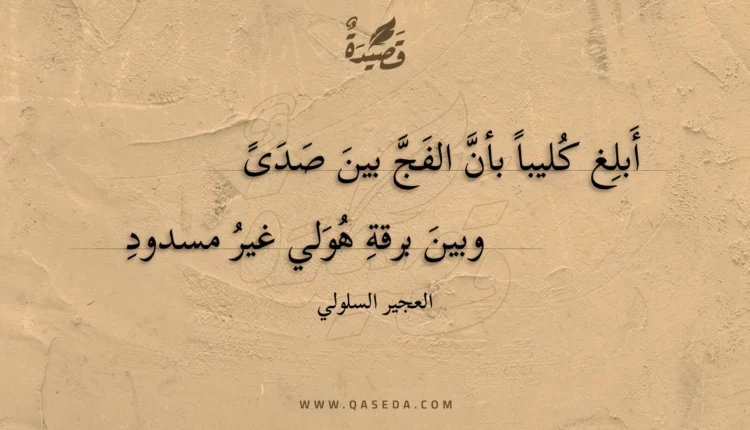 قَصِيدَةٌ
أَبلِغ كُليباً بأنَّ الفَجَّ بينَ صَدَىً
وبينَ برقةِ هُوَلي غيرُ مسدودِ
العجير السلولي
WWW.QASEDA.COM